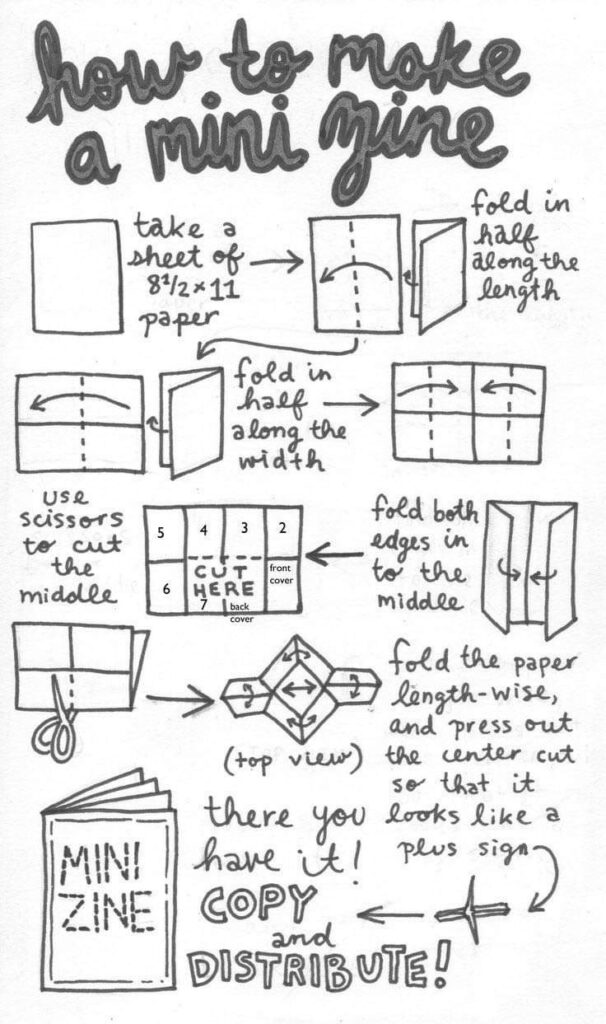 how to make
a mini zine
take a
sheet of
8 1/2 x 11
paper
fold in
half
along the
length
fold in
half
along the
width
fold both
edges in
to the
middle
5 4 3 2
6 CUT HERE front cover
7 back cover
use
scissors
to cut
the
middle
(top view)
fold the paper
length-wise,
and press out
the center cut
so that it
looks like a
plus sign
MINI
ZINE
there you
have it!
COPY
and
DISTRIBUTE!